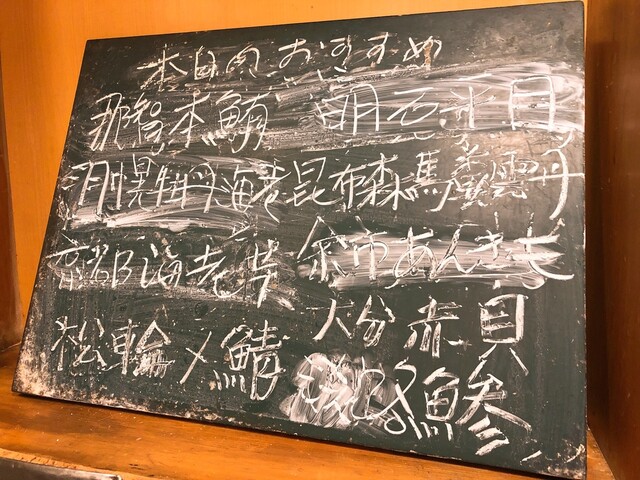 本日のおすすめ
那智本鮪 明石平目
牡丹海老 昆布森馬糞雲丹
京都 海老芋 余市あんきも
松輪〆鯖 大分赤貝
鯵